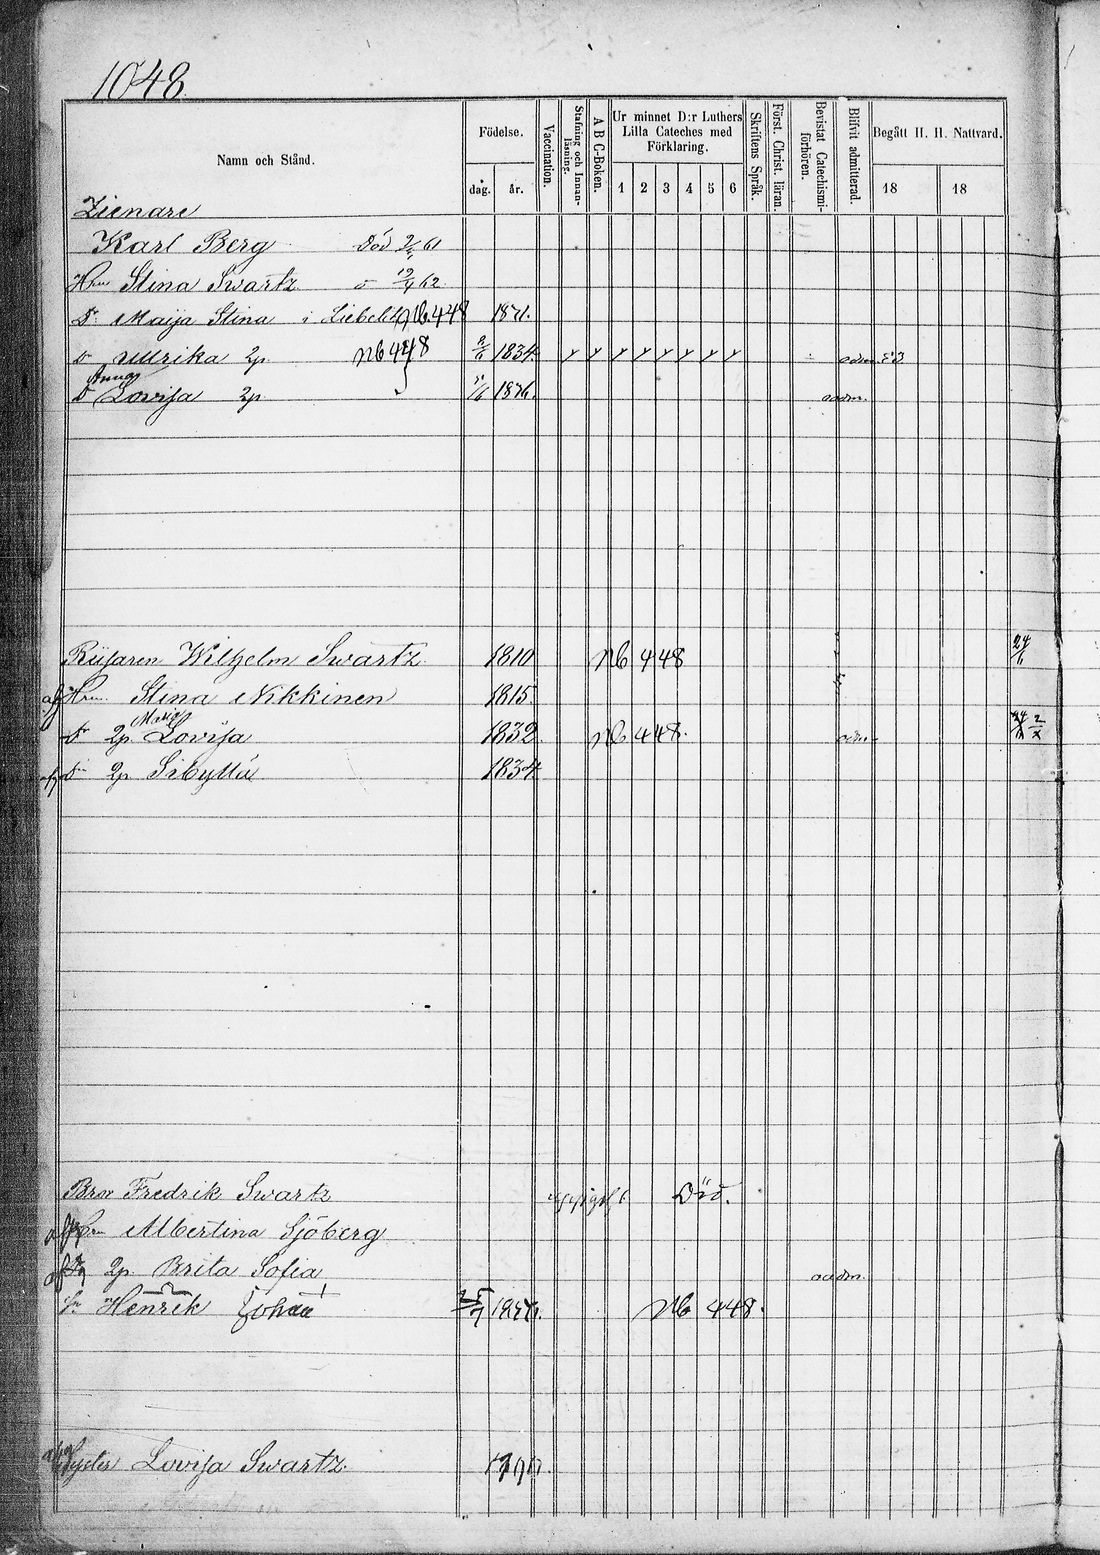 1048
Namn och Stånd.
Födelse.
dag.
år.
Vaccination.
Stafning och Innanläsning.
A B C-Boken.
Ur minnet D:r Luthers
Lilla Cateches med
Förklaring.
1 2 3 4 5 6
Skriftens Språk.
Först. Christ. läran.
Bevistat Catechismiförhören.
Blifvit admitterad.
Begått H. H. Nattvard.
18 18
Zienare
Karl Berg Död 61
Hru Stina Swartz 19/4 62
Dr Maija Stina i Nb 448
Ullrika 2p Nb 448 2/6 1834 adm 53
Anna
Lovisa 2p oadm.
Wilhelm Swartz 1810 Nb 448 24/6
Hru Stina Nikkinen 1815
Maria
Dr 2p Lovisa 1832 Nb 448 adm
Dr 2p Sibylla 1834
Bror Fredrik Swartz Död.
Hru Albertina Sjöberg
2p Brita Sofia oadm.
Henrik Johan Nb 448.
Syster Lovisa Swartz